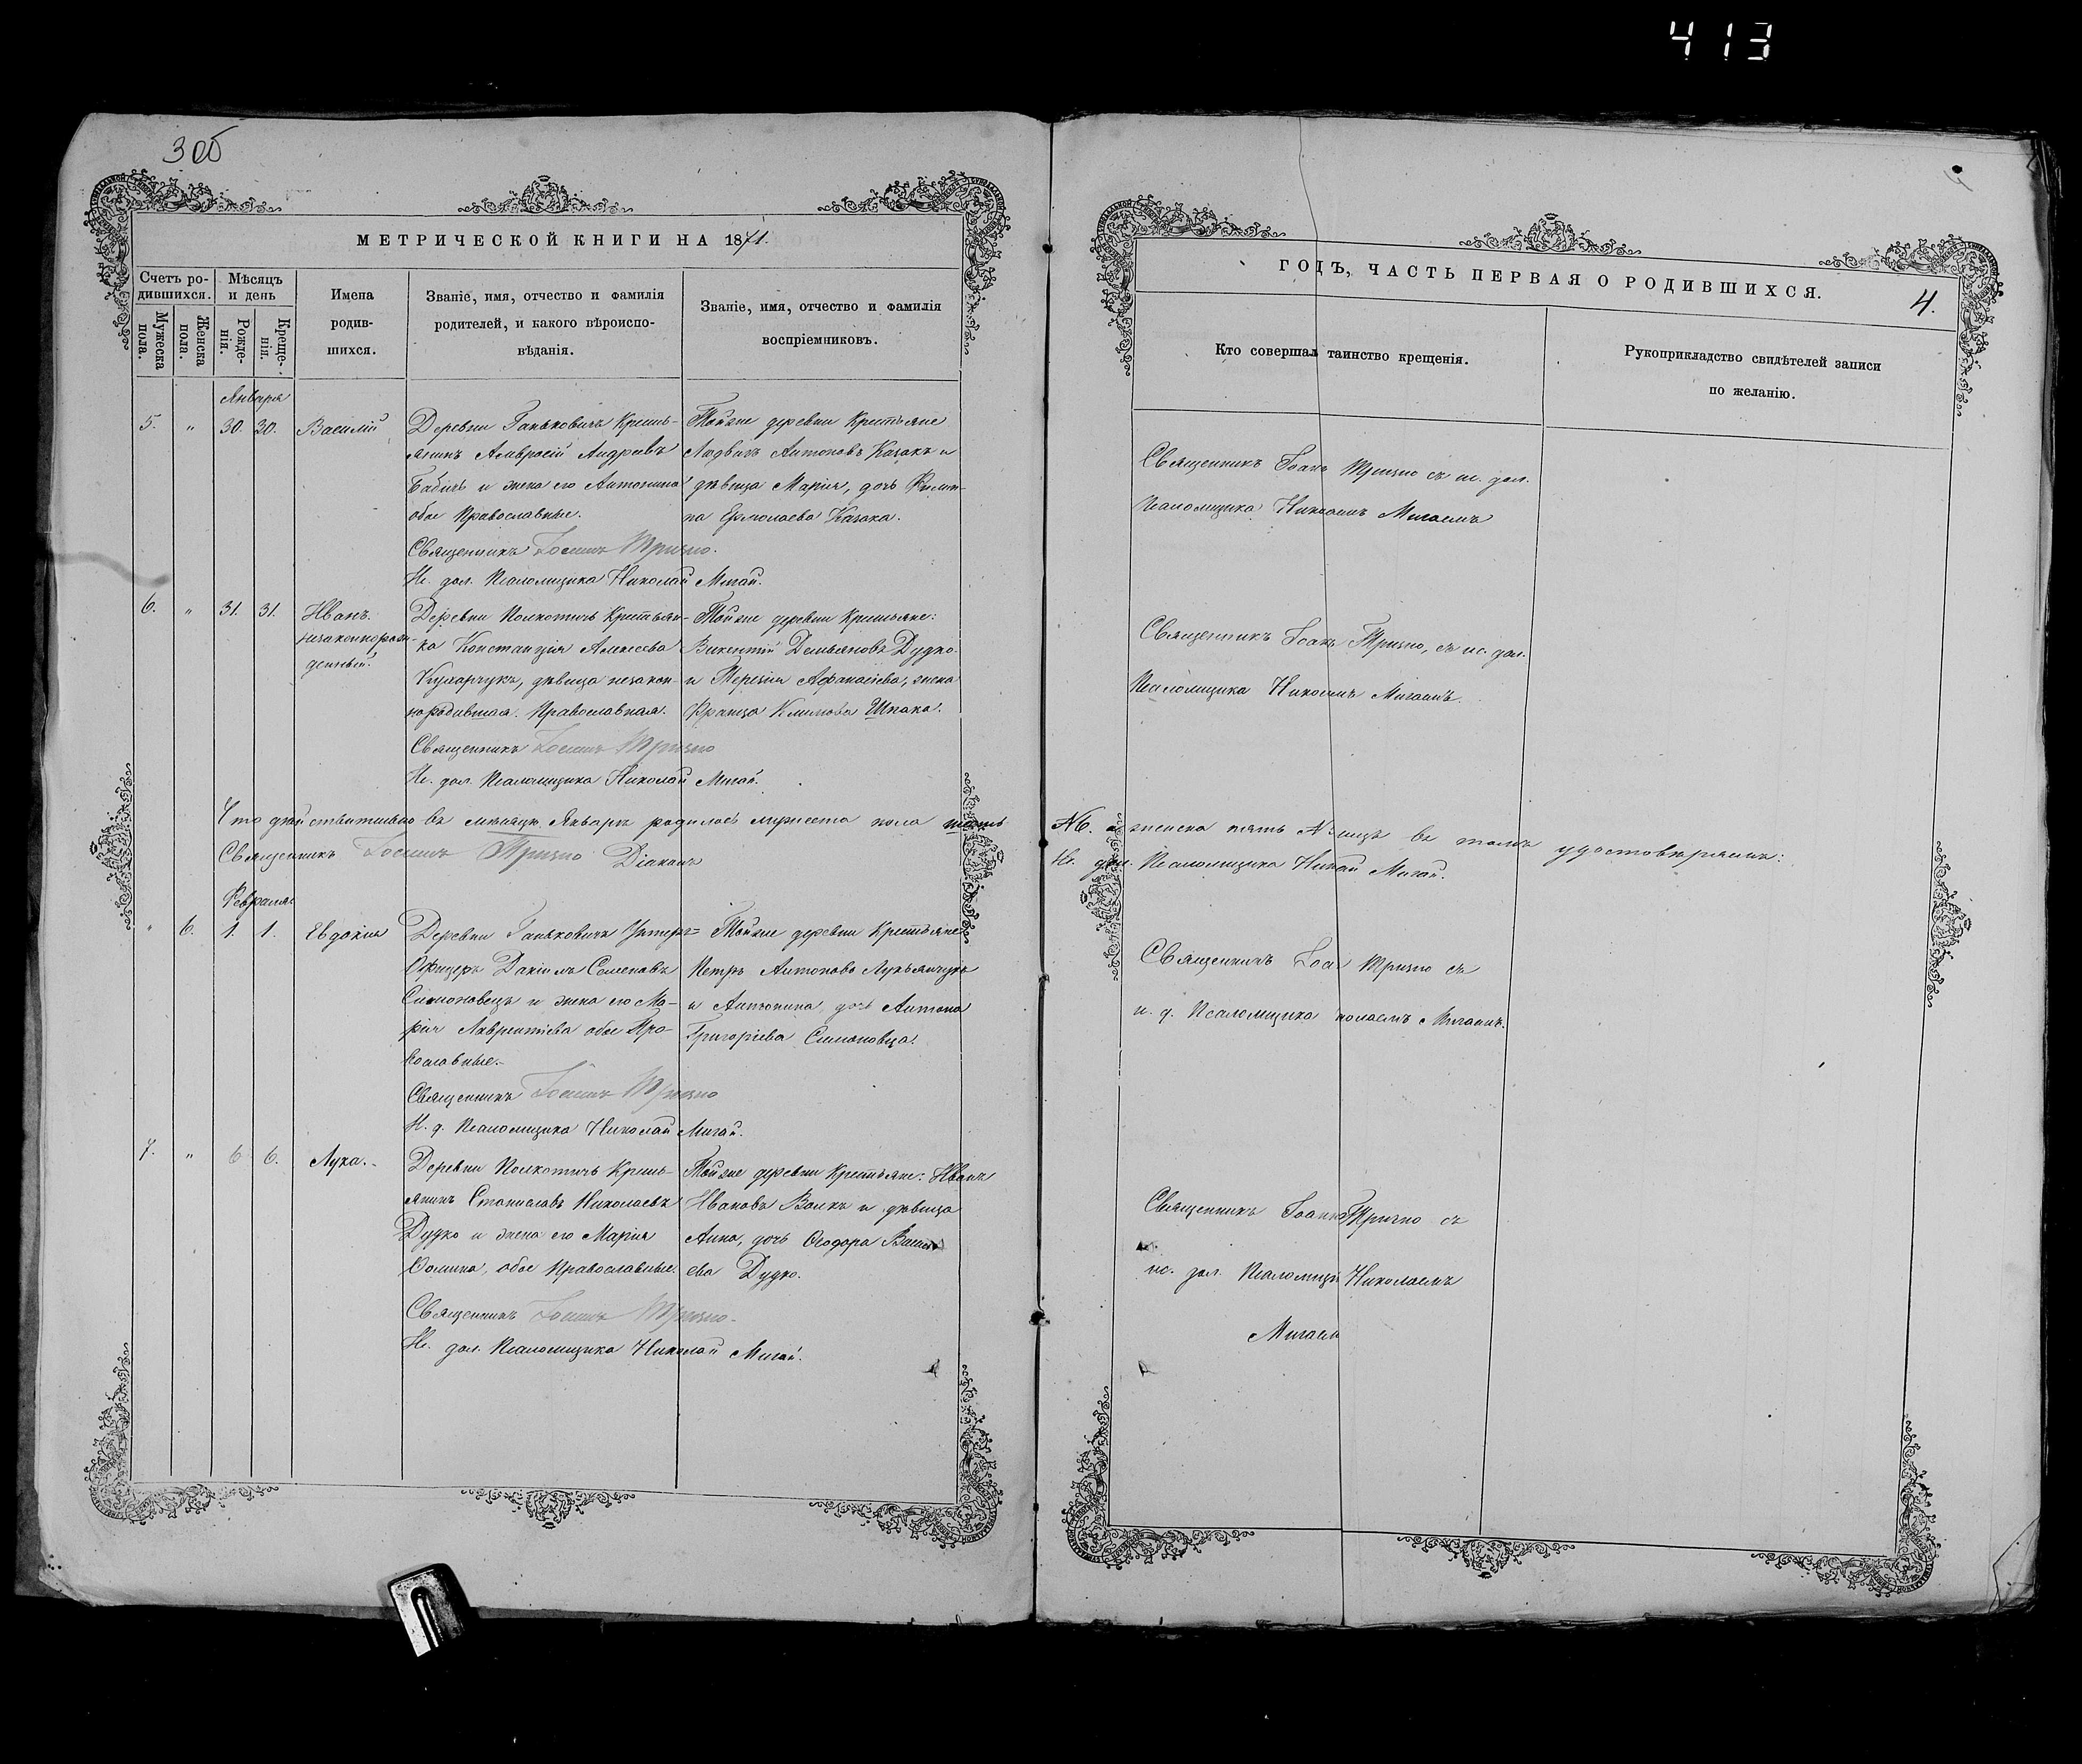 413
3 об
МЕТРИЧЕСКОЙ КНИГИ НА 1871.
Счетъ ро-
дившихся.
Мѣсяцъ
и день
Мужеска
пола.
Женска
пола.
Рожде-
нія.
Креще-
нія.
Имена
родив-
шихся.
Званіе, имя, отчество и фамилія
родителей, и какого вѣроиспо-
вѣданія.
Званіе, имя, отчество и фамилія
воспріемниковъ.
Января
5. " 30. 30. Василій
Деревни Ганьковичъ Кресть-
янинъ Амвросій Андреевъ
Бабичъ и жена его Антонина
обое Православные.
Священникъ Іоаннъ Тризно.
Ис. дол. Псаломщика Николай Мигай.
Тойже деревни Крестьяне
Людвигъ Антоновъ Казакъ и
дѣвица Марія, дочь Филип-
па Ермолаева Казака.
6. " 31. 31. Иванъ.
незаконорож-
денный.
Деревни Полкотичъ Крестьян-
ка Констанція Алексеева
Кушарчукъ, дѣвица незакон-
нородившая. Православная.
Священникъ Іоаннъ Тризно
Ис. дол. Псаломщика Николай Мигай.
Тойже деревни Крестьяне:
Викентій Демьяновъ Дудко
и Терезія Афанасіева, жена
Франца Климова Шпака.
Что дѣйствительно въ мѣсяцѣ Январѣ родилось мужеска пола шесть
Священникъ Іоаннъ Тризно Діаконъ
Февраля
" 6. 1. 1. Евдокія
Деревни Ганьковичъ Унтеръ=
Офицеръ Даніилъ Семеновъ
Симоновецъ и жена его Ма-
рія Лаврентіева обое Пра-
вославные.
Священникъ Іоаннъ Тризно
И. д. Псаломщика Николай Мигай.
Тойже деревни Крестьяне
Петръ Антоновъ Лукьянчукъ
и Антонина, дочь Антона
Григоріева Симоновца.
7. " 6 6. Лука.
Деревни Полкотичъ Кресть-
янинъ Станиславъ Николаевъ
Дудко и жена его Марія
Фомина, обое Православные.
Священникъ Іоаннъ Тризно
Ис. дол. Псаломщика Николай Мигай.
Тойже деревни Крестьяне: Иванъ
Ивановъ Волкъ и дѣвица
Анна, дочь Ѳеодора Василь
ева Дудко.
ГОДЪ, ЧАСТЬ ПЕРВАЯ О РОДИВШИХСЯ.
4.
Кто совершал таинство крещенія.
Рукоприкладство свидѣтелей записи
по желанію.
Священникъ Іоанъ Тризно съ ис. дол.
Псаломщика Николаемъ Мигаемъ
Священникъ Іоанъ Тризно, съ ис. дол.
Псаломщика Николаемъ Мигаемъ.
№6. а женска пять № лицъ въ томъ удостовѣряемъ:
Ис. дол. Псаломщика Николай Мигай.
Священникъ Тризно съ
и. д. Псаломщика колаемъ Мигаемъ.
Священникъ Іоаннъ Тризно съ
ис. дол. Псаломщи Николаемъ
Мигаем